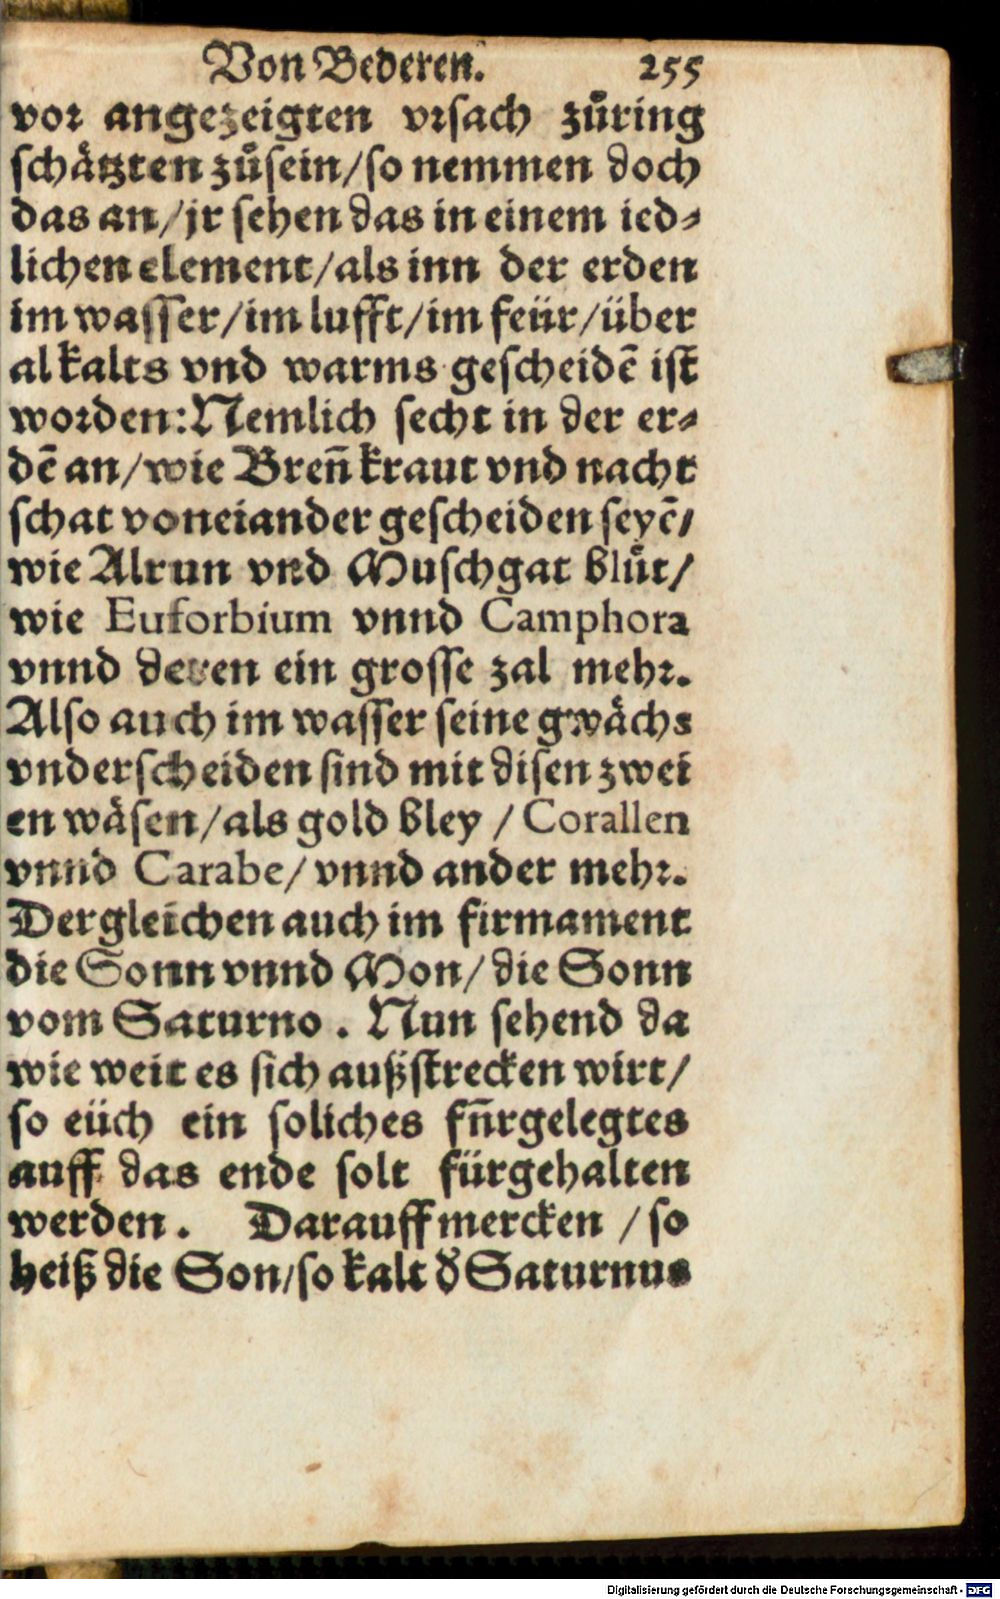 Von Bederen. 255
vor angezeigten vrsach zůring
schätzten zůsein/so nemmen doch
das an/jr sehen das in einem ied⸗
lichen element/als inn der erden
im wasser/im lufft/im feür/über
al kalts vnd warms gescheidē ist
worden:Nemlich secht in der er⸗
dē an/wie Breñ kraut vnd nacht
schat voneiander gescheiden seyē/
wie Alrun vnd Muschgat blůt/
wie Euforbium vnnd Camphora
vnnd deren ein grosse zal mehr.
Also auch im wasser seine gwächs
vnderscheiden sind mit disen zwei
en wäsen/als gold bley / Corallen
vnnd Carabe/ vnnd ander mehr.
Dergleichen auch im firmament
die Sonn vnnd Mon/ die Sonn
vom Saturno . Nun sehend da
wie weit es sich außstrecken wirt/
so eüch ein soliches fn̄rgelegtes
auff das ende solt fürgehalten
werden. Darauff mercken /so
heiß die Son/so kalt d̕ Saturnus
Digitalisierung gefördert durch die Deutsche Forschungsgemeinschaft - DFG